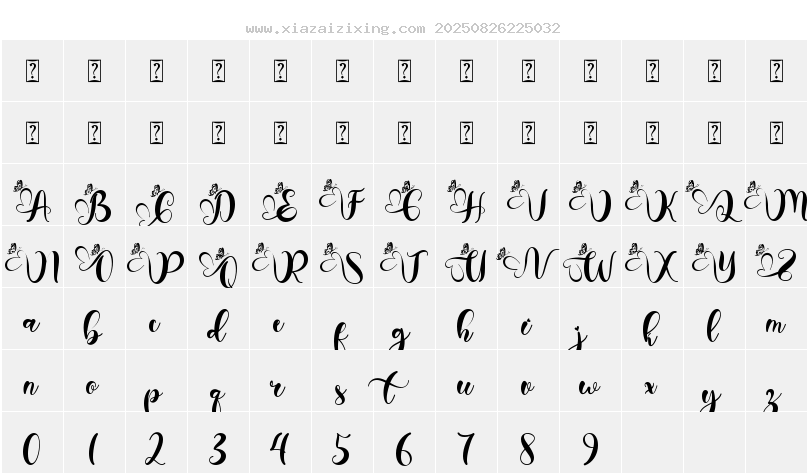 www.xiazaizixing.com 20250826225032
? ? ? ? ? ? ? ? ? ? ? ? ?
? ? ? ? ? ? ? ? ? ? ? ? ?
A B C D E F G H I J K L M
N O P Q R S T U V W X Y Z
a b c d e f g h i j k l m
n o p q r s t u v w x y z
0 1 2 3 4 5 6 7 8 9